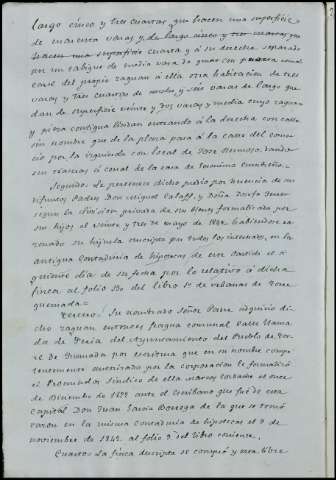 largo cinco y tres cuartas que hacen una superficie
de cuarenta varas y de largo cinco y tres cuartas que
hacen una superficie cuarta y á su derecha separado
por un tabique de media vara de grueso con
del propio zaguan á ella otra habitacion de tres
varas y tres cuartas de ancho y seis varas de largo que
dan de superficie veinte y dos varas y media cuyo zaguan
y pieza contigua lindan entrando á la derecha con calle
sin nombre que de la plaza pasa á la calle del comer
cio por la izquierda con local de Jose
y canal de la casa de
Segundo: Le pertenece dicho predio por herencia de sus
difuntos Padres Don Miguel y Doña Josefa
segun la division privada de sus bienes formalizada por
sus hijos el veinte y tres de mayo de 1882 habiendose to
mado su hijuela suscripta por todos los interesados, en la
antigua Contaduria de hipotecas de este Partido el si
guiente dia de su fecha por lo relativo á dicha
finca al folio 130 del libro 1º de urbanas de Torre
quemada=
Tercero: Su nombrado Señor Padre adquirió di
cho zaguan entonces fragua comunal calle llama
da de Feria del Ayuntamiento del Pueblo de Tor
re de por escritura que en su nombre comp
tentemente autorizado por la corporacion le formalizó
el Procurador Sindico de ella Marcos el once
de Diciembre de ante el escribano que fué de esta
capital Don Juan Garcia Borrega de la que se tomó
razon en la misma contaduria de hipotecas el 9 de
noviembre de 1842 al folio 9 del libro corriente.
Cuarto: La finca descripta se conservó y esta libre